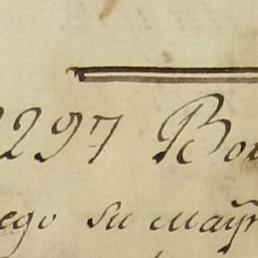 2297 Bo
ego su may